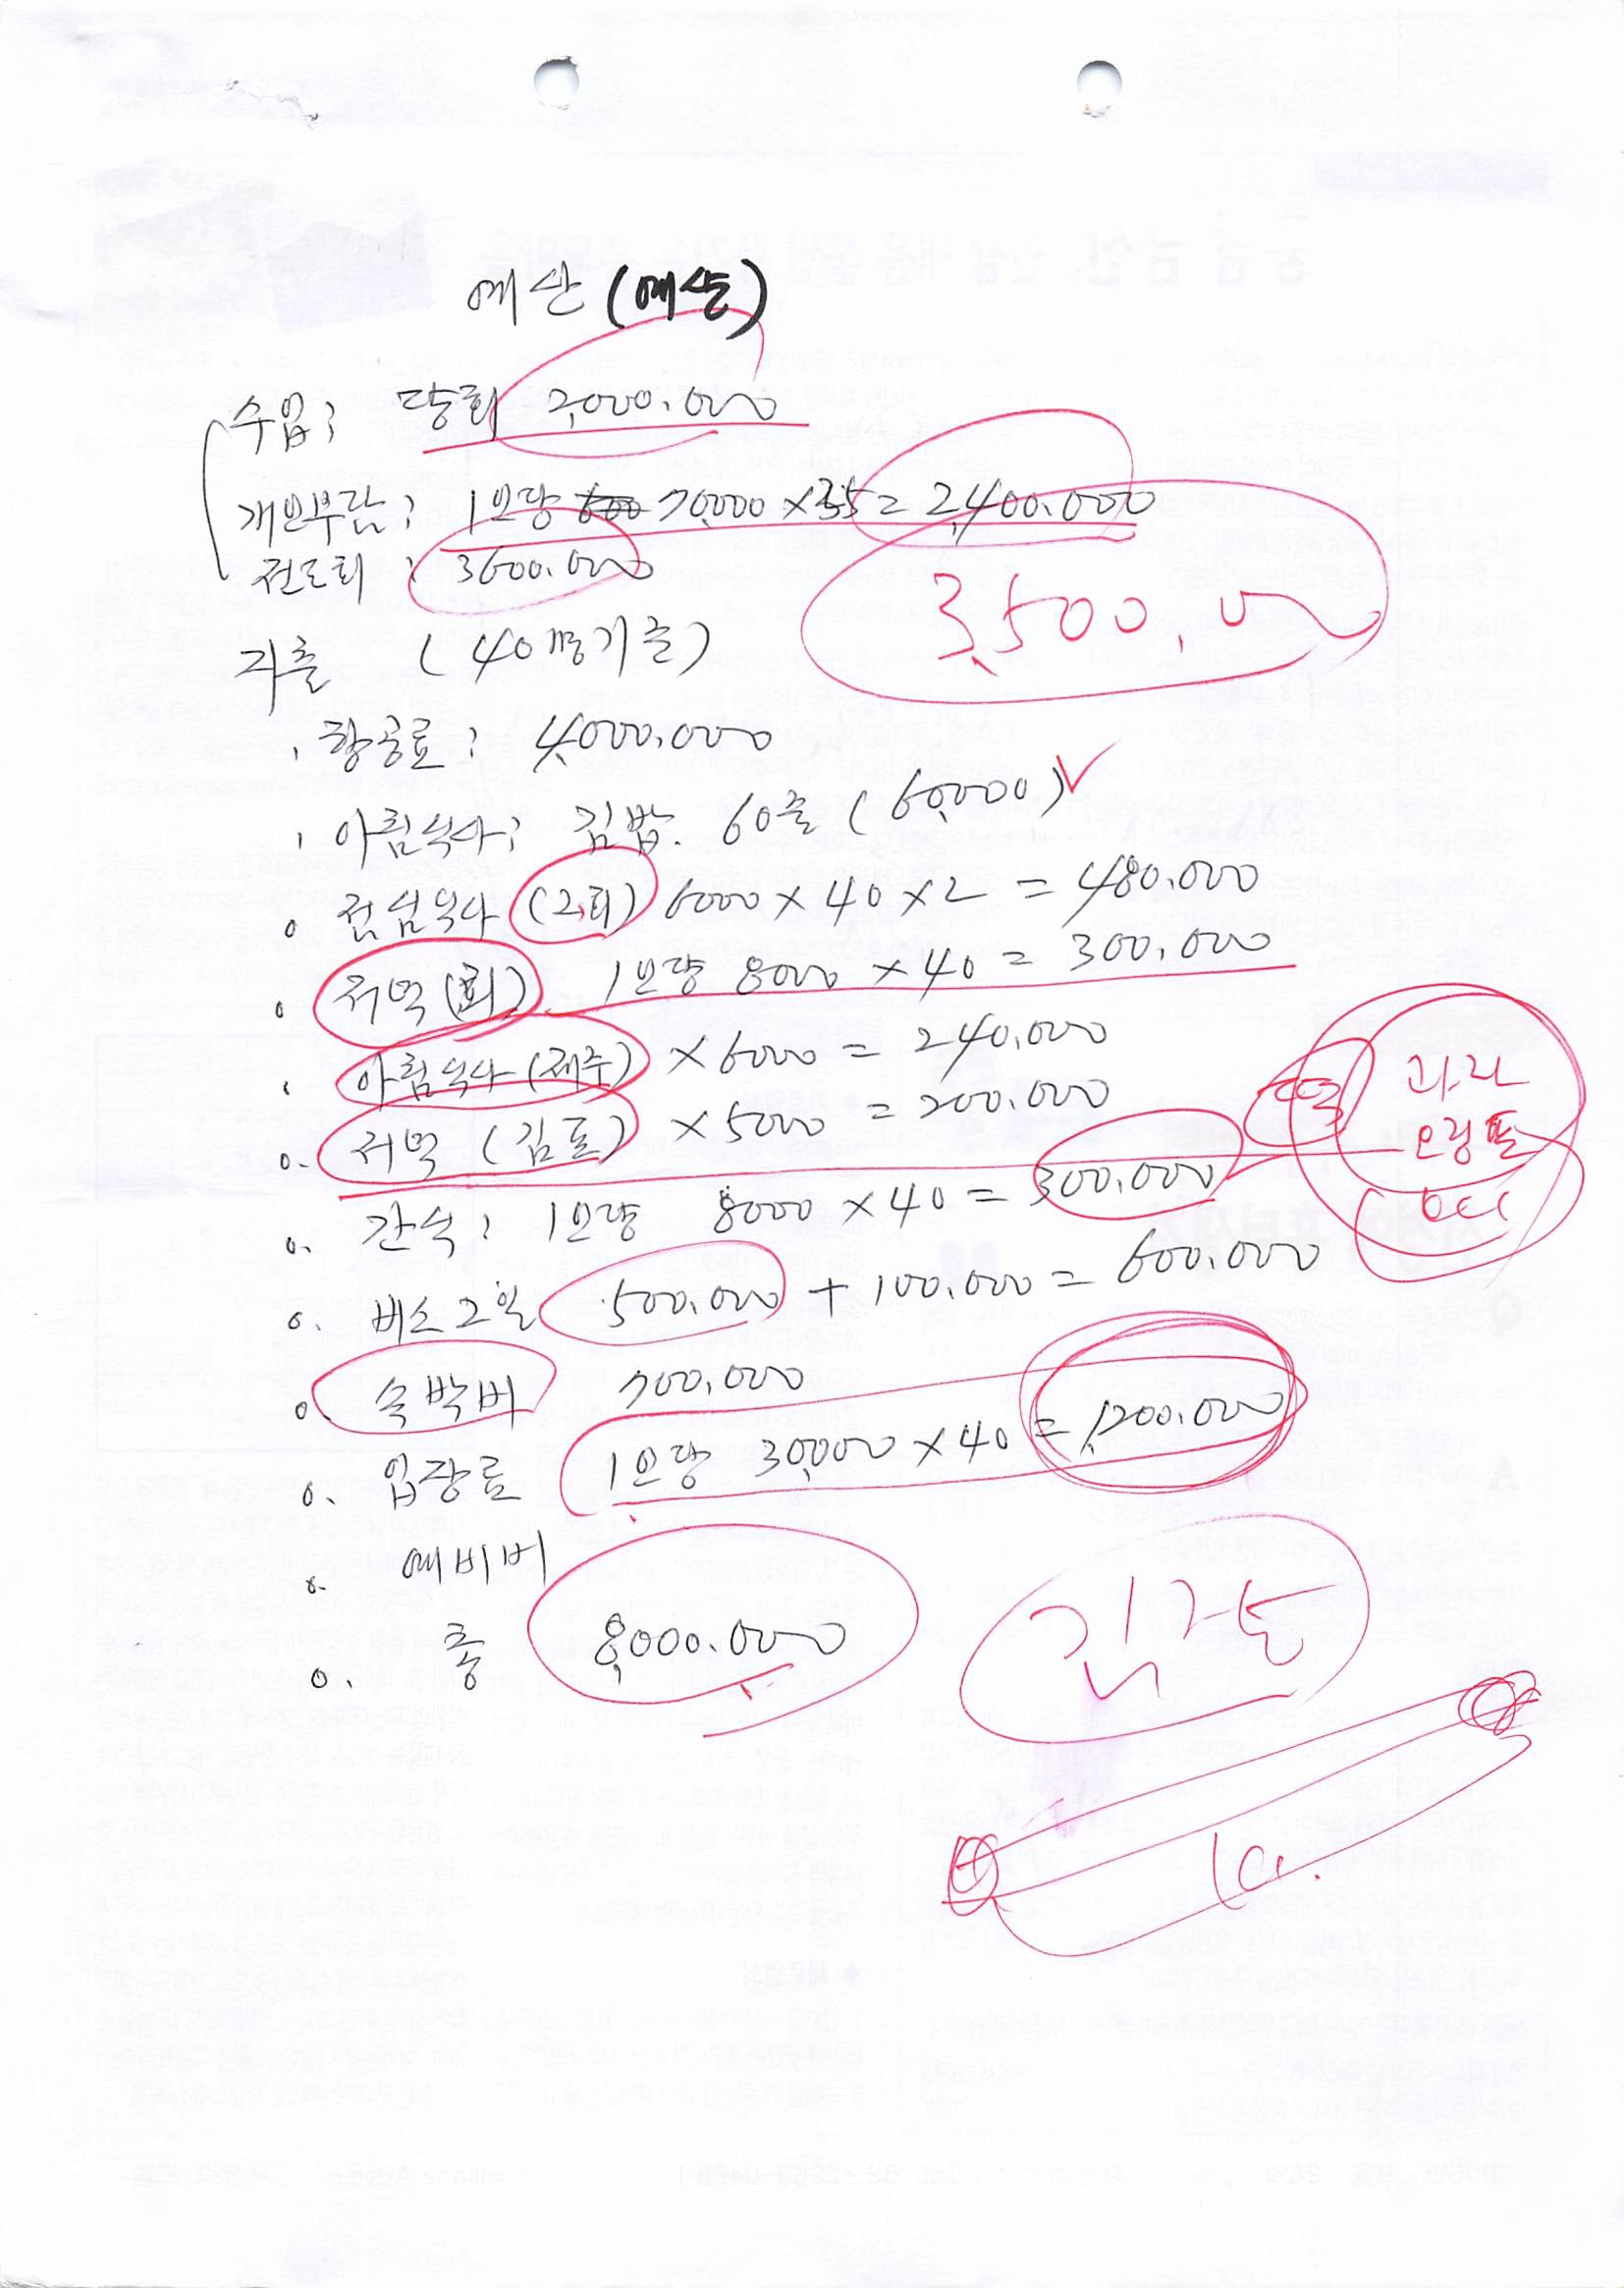 예산 (예산)
수입; 당회 2,000.000
개인부담; 1인당 70,000 × 35 = 2,400.000
전도회; 3600.000
3,500,000
지출 (40명기준)
항공료; 4,000.000
아침식사; 김밥. 60줄 (60,000)
점심식사 (2회) 6000 × 40 × 2 = 480.000
저녁(회) 1인당 8000 × 40 = 300.000
아침식사(제주) × 6000 = 240.000
저녁 (김포) × 5000 = 200.000
과자
간식; 1인당 8000 × 40 = 300.000
버스 2일 500.000 + 100.000 = 600.000
숙박비 700.000
입장료 1인당 30,000 × 40 = 1,200.000
예비비
총 8,000.000